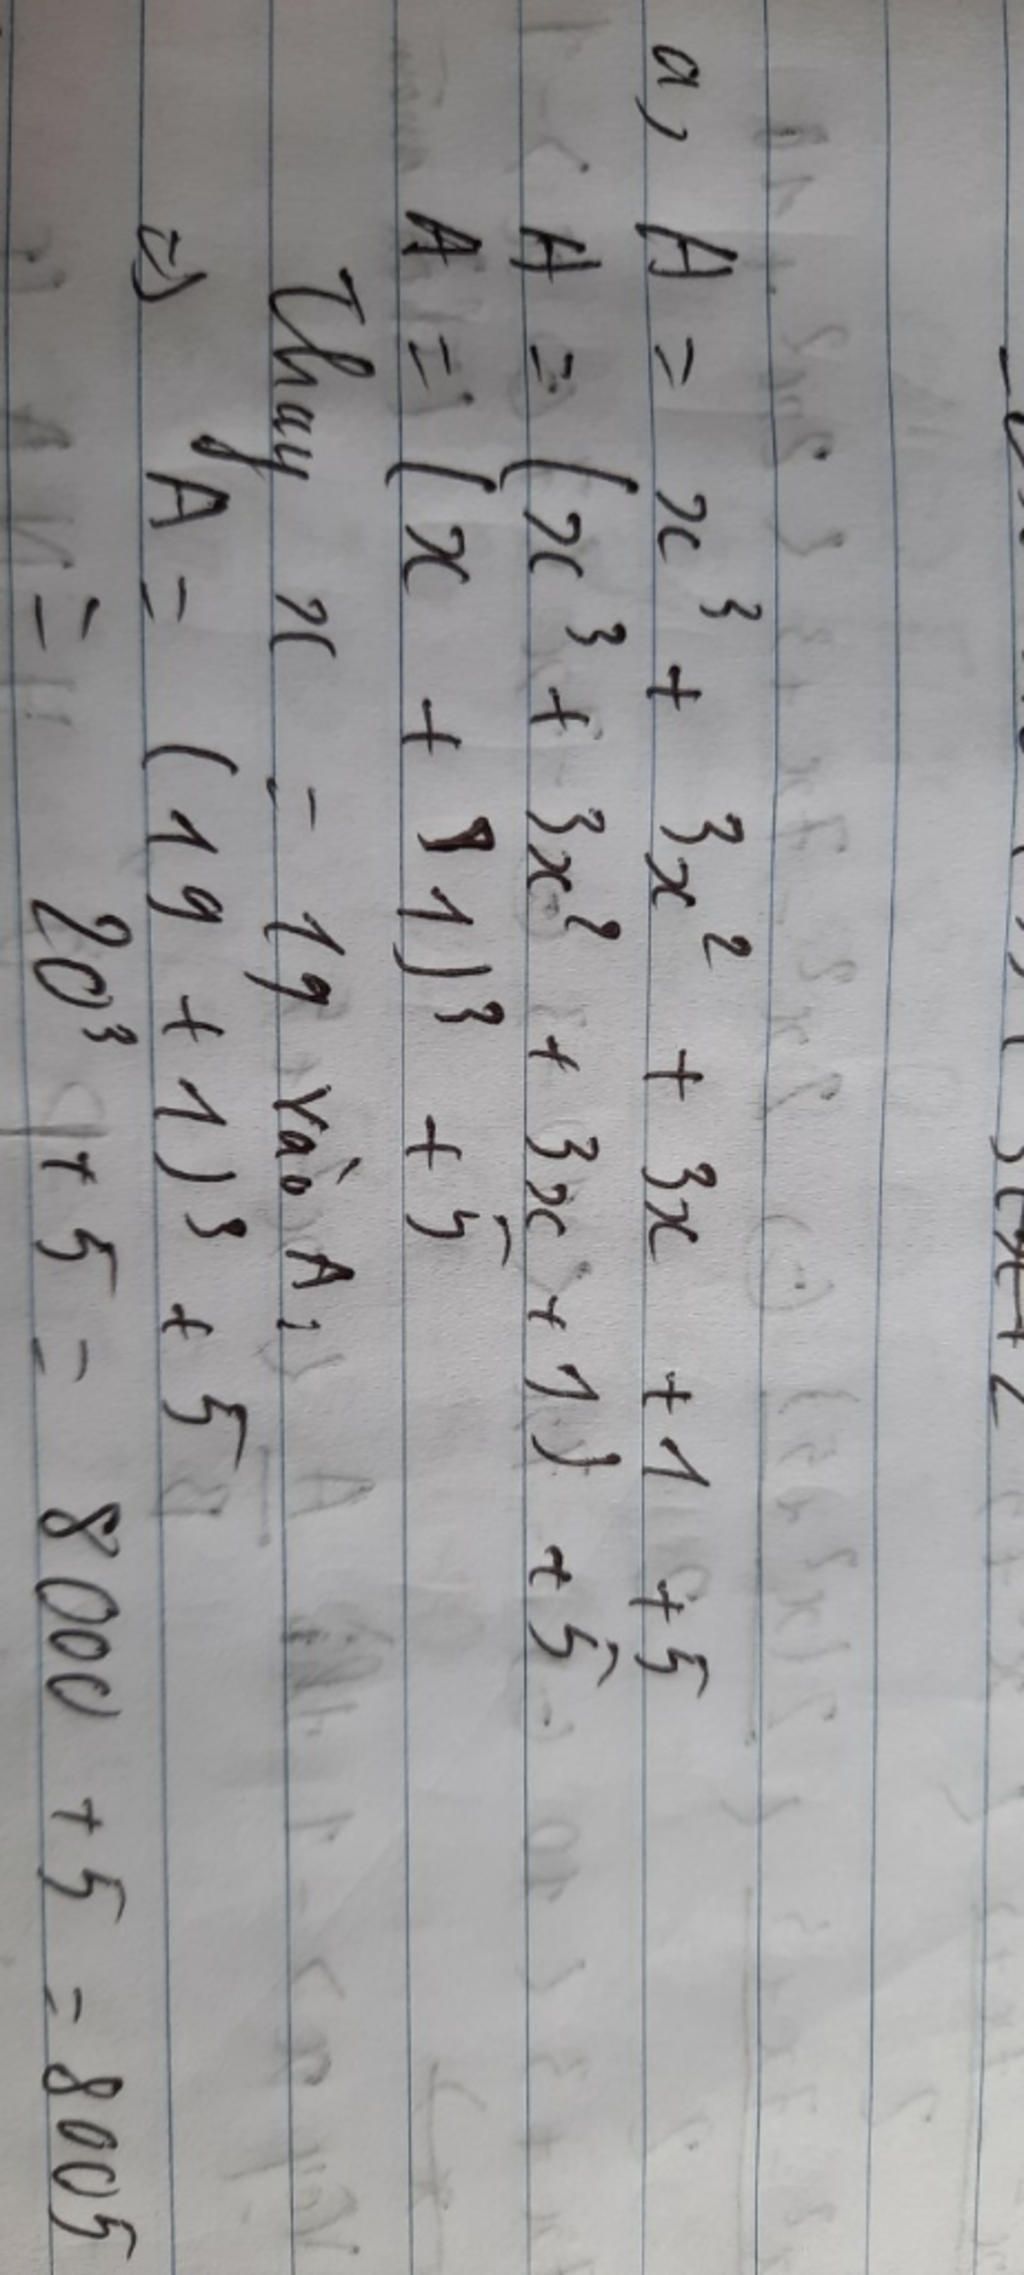 a, A = x³ + 3x² + 3x + 1 + 5
A = (x³ + 3x² + 3x + 1) + 5
A = (x + 1)³ + 5
Thay x = 19 vào A:
=> A = (19 + 1)³ + 5
= 20³ + 5 = 8000 + 5 = 8005